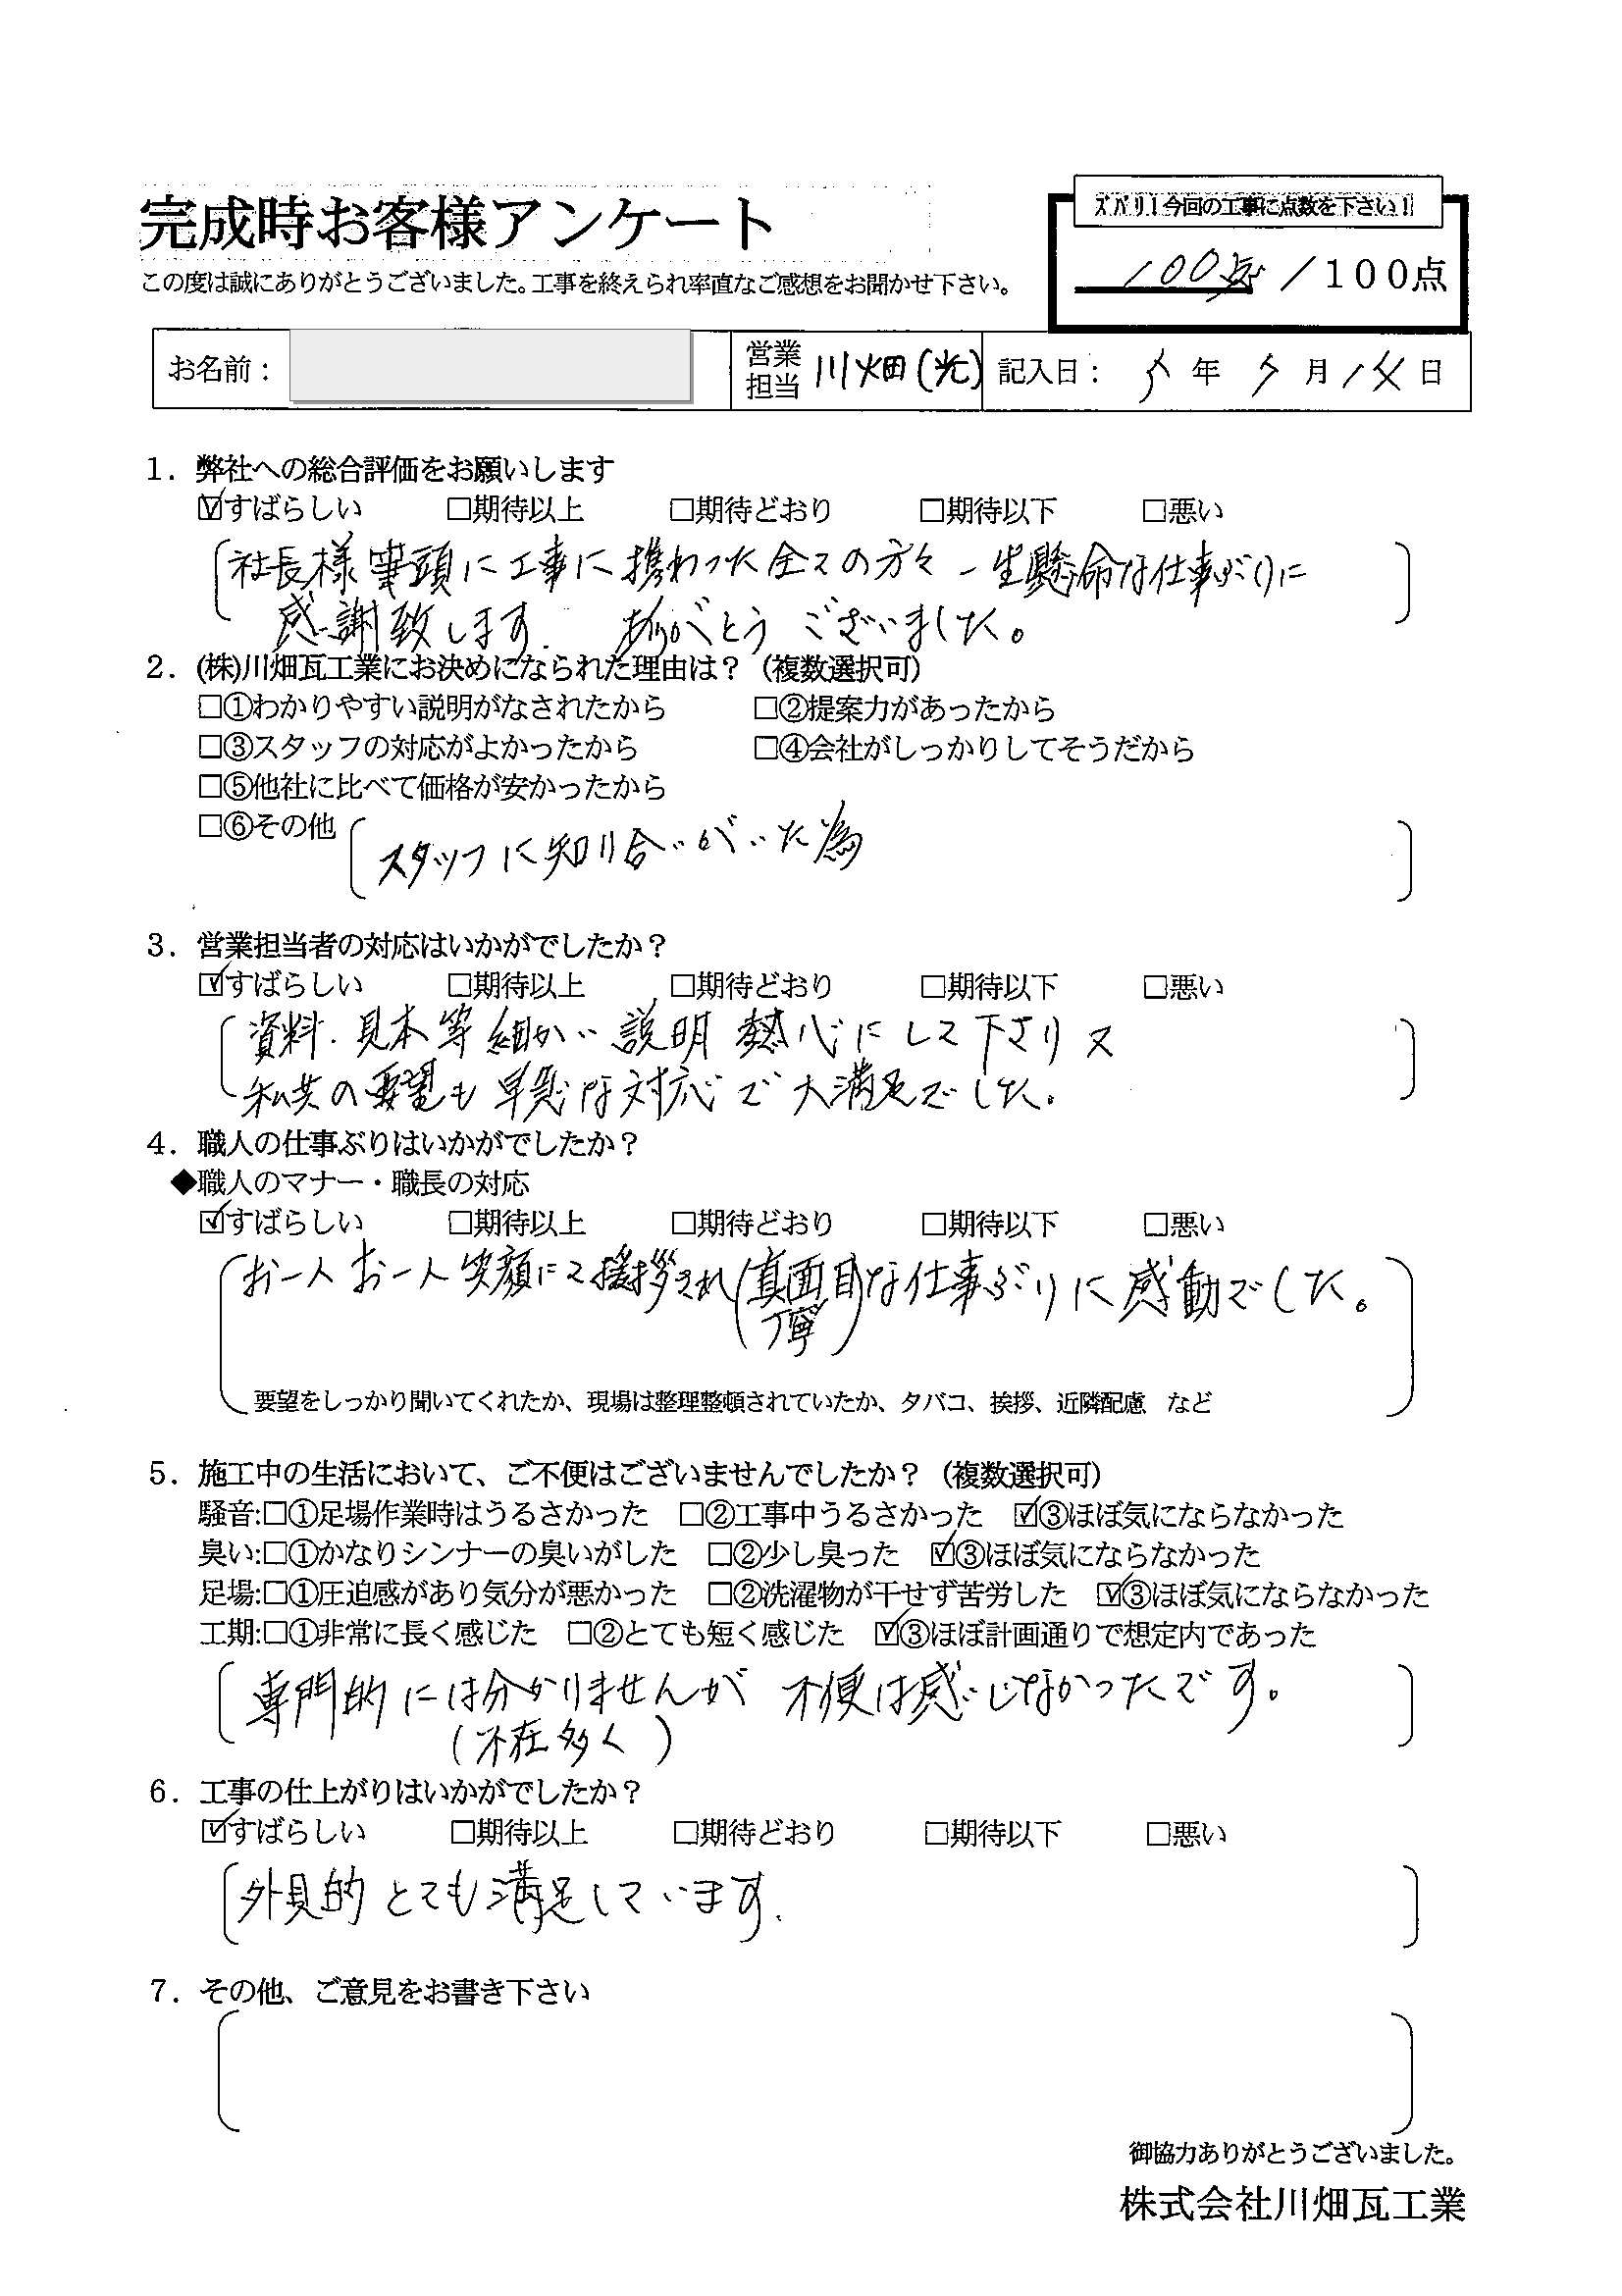 完成時お客様アンケート
この度は誠にありがとうございました。工事を終えられ率直なご感想をお聞かせ下さい。
ズバリ!今回の工事に点数を下さい!
100点／100点
お名前：
営業担当 川畑(光)
記入日： 年 月 日
1．弊社への総合評価をお願いします
☑すばらしい □期待以上 □期待どおり □期待以下 □悪い
社長様筆頭に工事に携わった全ての方々一生懸命な仕事ぶりに
感謝致します. 有りがとうございました。
2．(株)川畑瓦工業にお決めになられた理由は？（複数選択可）
□①わかりやすい説明がなされたから □②提案力があったから
□③スタッフの対応がよかったから □④会社がしっかりしてそうだから
□⑤他社に比べて価格が安かったから
□⑥その他
スタッフに知り合いがいた為
3．営業担当者の対応はいかがでしたか？
☑すばらしい □期待以上 □期待どおり □期待以下 □悪い
資料.見本等細かい説明熱心にして下さり又
私共の要望も早急な対応で大満足でした。
4．職人の仕事ぶりはいかがでしたか？
◆職人のマナー・職長の対応
☑すばらしい □期待以上 □期待どおり □期待以下 □悪い
お一人お一人笑顔にて挨拶され(真面目)な仕事ぶりに感動でした。
丁寧
要望をしっかり聞いてくれたか、現場は整理整頓されていたか、タバコ、挨拶、近隣配慮　など
5．施工中の生活において、ご不便はございませんでしたか？（複数選択可）
騒音:□①足場作業時はうるさかった □②工事中うるさかった ☑③ほぼ気にならなかった
臭い:□①かなりシンナーの臭いがした □②少し臭った ☑③ほぼ気にならなかった
足場:□①圧迫感があり気分が悪かった □②洗濯物が干せず苦労した ☑③ほぼ気にならなかった
工期:□①非常に長く感じた □②とても短く感じた ☑③ほぼ計画通りで想定内であった
専門的には分かりませんが 不便は感じなかったです。
(不在多く)
6．工事の仕上がりはいかがでしたか？
☑すばらしい □期待以上 □期待どおり □期待以下 □悪い
外見的とても満足しています.
7．その他、ご意見をお書き下さい
御協力ありがとうございました。
株式会社川畑瓦工業